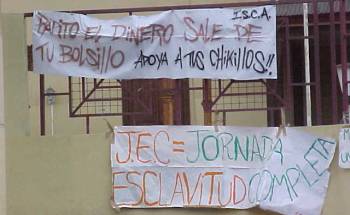 PAPITO EL DINERO SALE DE
I.S.C.A.
TU BOLSILLO APOYA A TUS CHIKILLOS!!
J.E.C = JORNADA
ESCLAVITUD COMPLETA